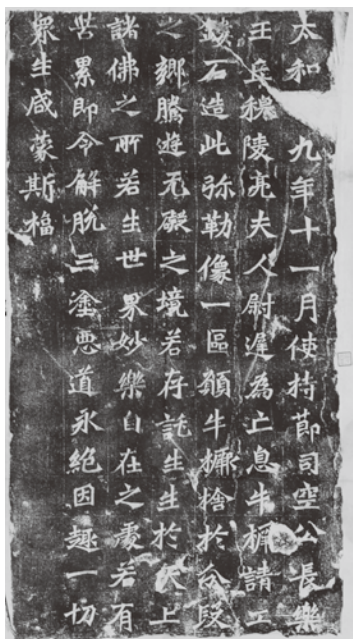 太和 九年十一月使持節司空公長樂
王丘穆陵亮夫人尉遲為亡息牛橛請工
鏤石造此弥勒像一區願牛橛捨於分段
之鄉騰遊无礙之境若存託生生於天上
諸佛之所若生世界妙樂自在之處若有
苦累即令解脱三塗惡道永絶因趣一切
衆生咸蒙斯福